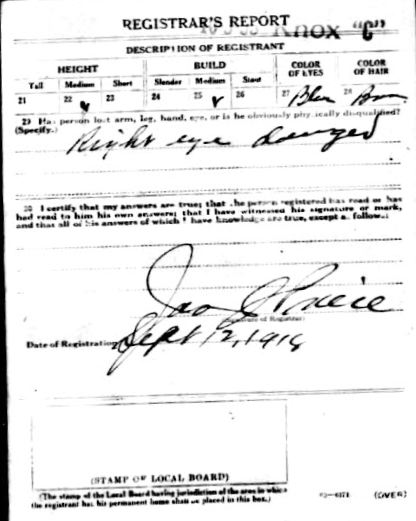 REGISTRAR'S REPORT
Knox "C"
DESCRIPTION OF REGISTRANT
HEIGHT BUILD COLOR OF EYES COLOR OF HAIR
Tall Medium Short Slender Medium Stout
21 22 ✓ 23 24 25 ✓ 26 27 Blue 28
29 Has person lost arm, leg, hand, eye, or is he obviously physically disqualified?
(Specify.)
Right eye
30 I certify that my answers are true; that the person registered has read or has
had read to him his own answers; that I have witnessed his signature or mark,
and that all of his answers of which I have knowledge are true, except as follows:
Jao
(Signature of Registrar)
Date of Registration Sept 12, 1918
(STAMP OF LOCAL BOARD)
(The stamp of the Local Board having jurisdiction of the area in which
the registrant has his permanent home shall be placed in this box.)
(OVER)